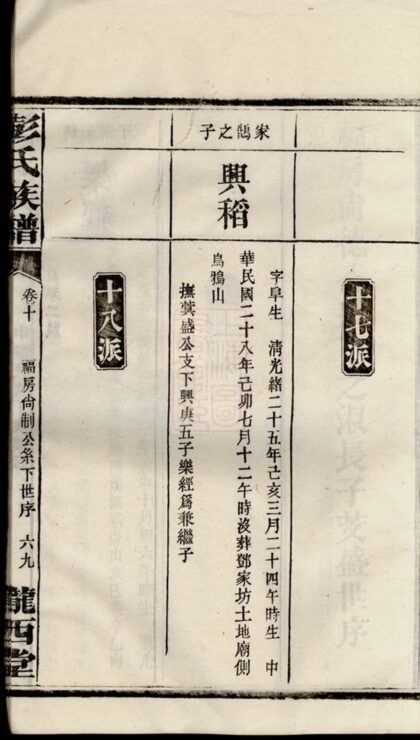 十七派
家鵠之子
興稻
字阜生　清光緒二十五年己亥三月二十四午時生　中
華民國二十八年己卯七月十二午時沒葬鄧家坊土地廟側
烏鴉山
撫龔盛公支下興庚五子樂經爲兼繼子
十八派
彭氏族譜
卷十　福房尙制公系下世序　六九
隴西堂